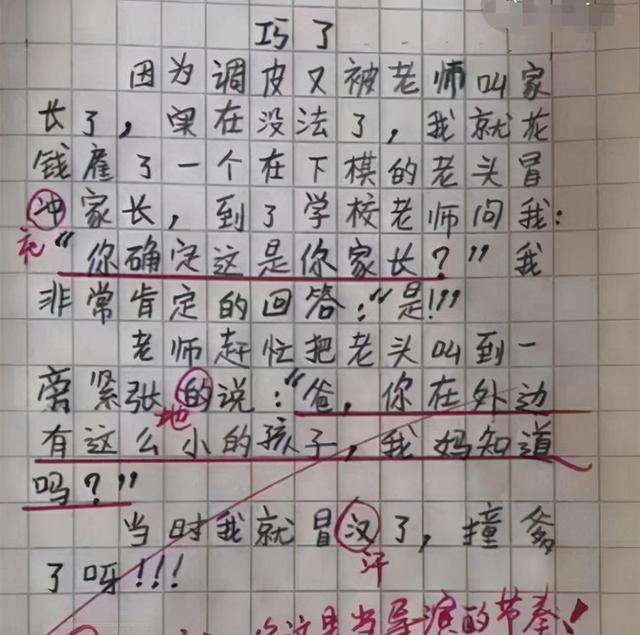 巧了
因为调皮又被老师叫家
长了，实在没法了，我就花
钱雇了一个在下棋的老头冒
冲家长，到了学校老师问我：
充
“你确定这是你家长？”我
非常肯定的回答：“是!!”
老师赶忙把老头叫到一
旁紧张的说：“爸，你在外边
地
有这么小的孩子，我妈知道
吗？”
当时我就冒汉了，撞爹
汗
了呀!!!
你这是当导演的节奏!